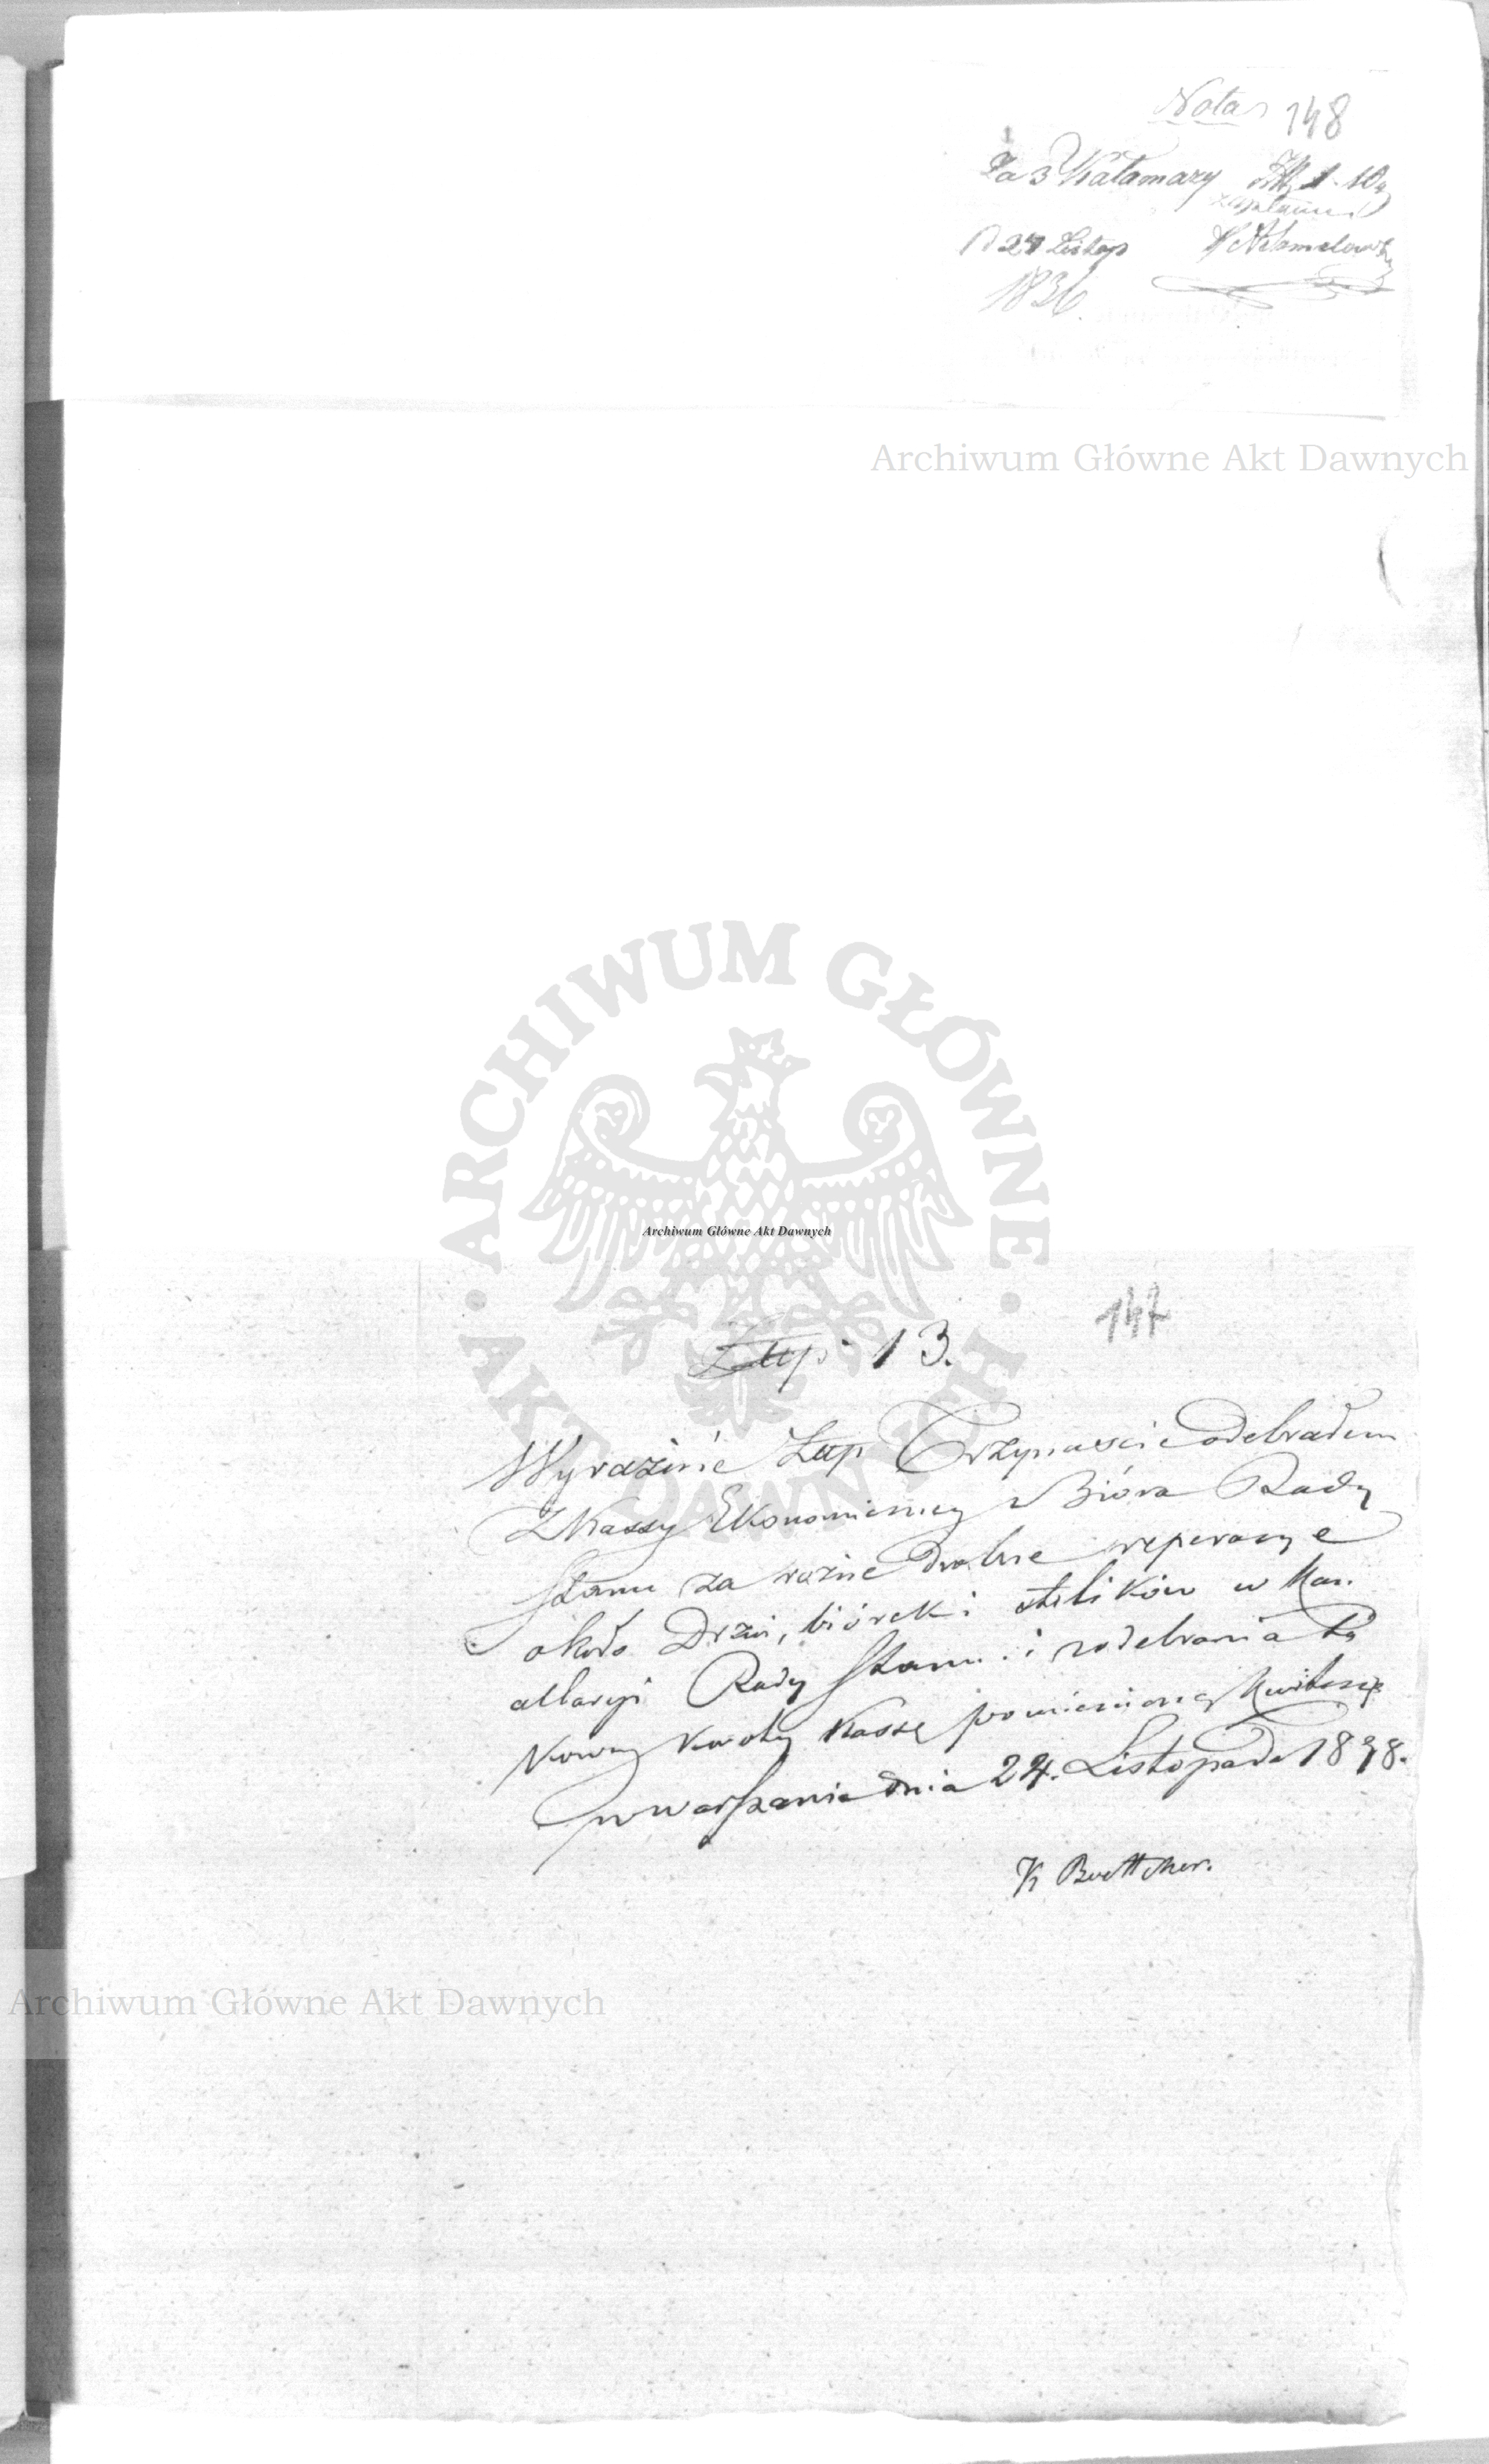 Nota
148
Za 3 Kałamarzy Złt 1 - 10 g
zapłacone
d 24 Listop
1836
Archiwum Główne Akt Dawnych
ARCHIWUM GŁÓWNE AKT DAWNYCH
Archiwum Główne Akt Dawnych
147
Złtp 13.
Wyraźnie Złtp Trzynaście odebrałem
Z Kassy Ekonomicznej Bióra Rady
Stanu za rożne drobne reperacye
około Drzwi, biórek i stolików w Kan.
cellaryi Rady Stanu i z odebrania ta
kowey kwoty Kassę pomienioną kwituję
w Warszawie dnia 24. Listopada 1838.
K Boettcher.
Archiwum Główne Akt Dawnych